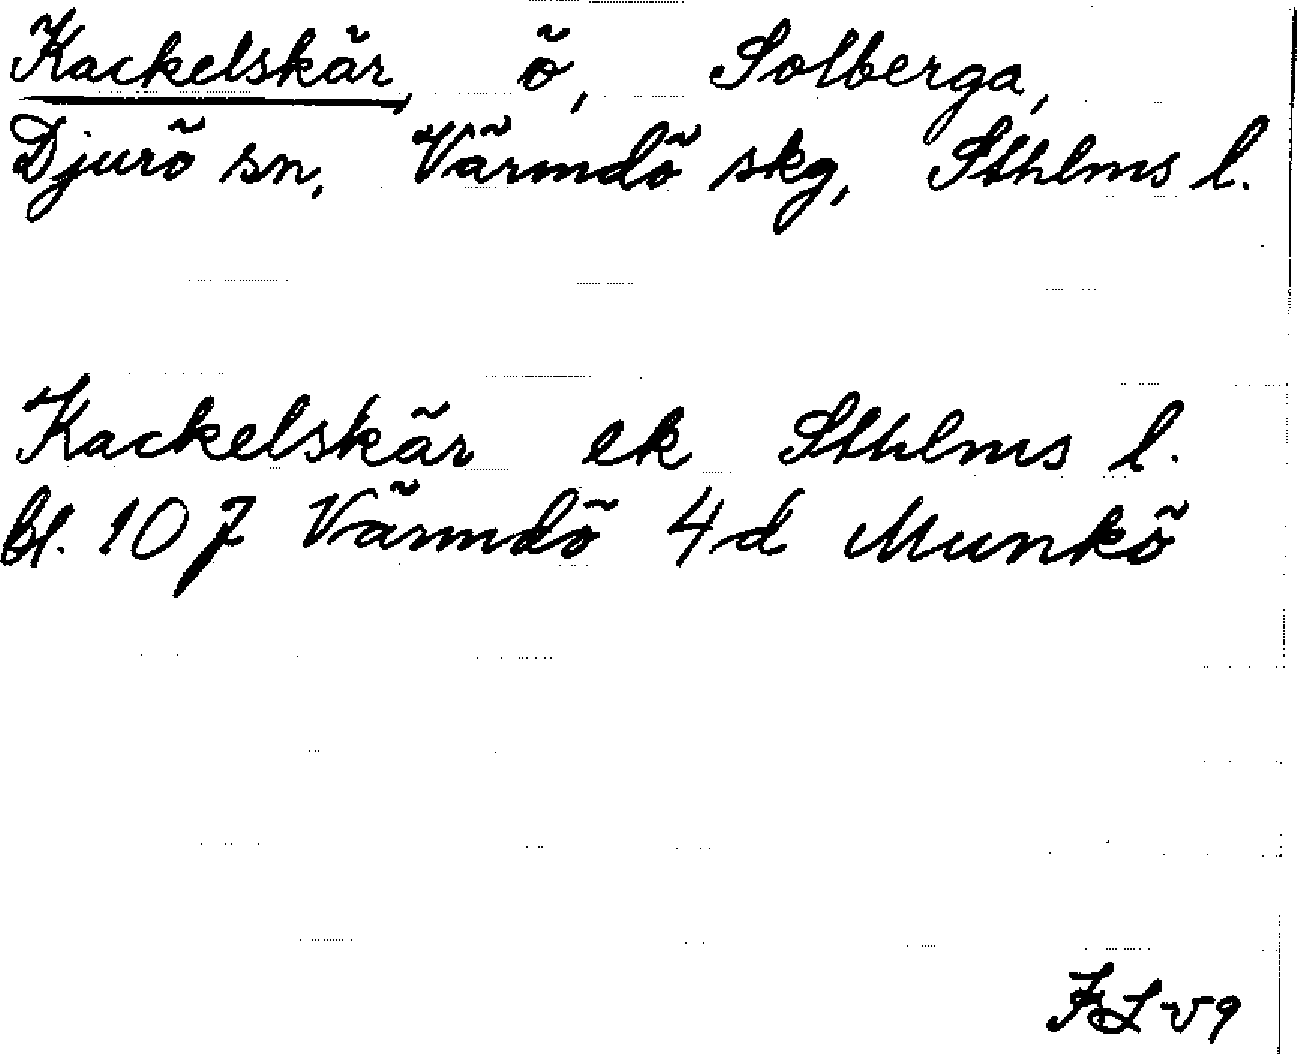 Kackelskär, ö, Solberga,
Djurö sn, Värmdö skg, Sthlms l.
Kackelskär ek Sthlms l.
bl. 107 Värmdö 4d Munkö